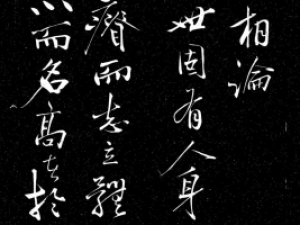 相論
世固有人身
瘠而志立體
小而名高於